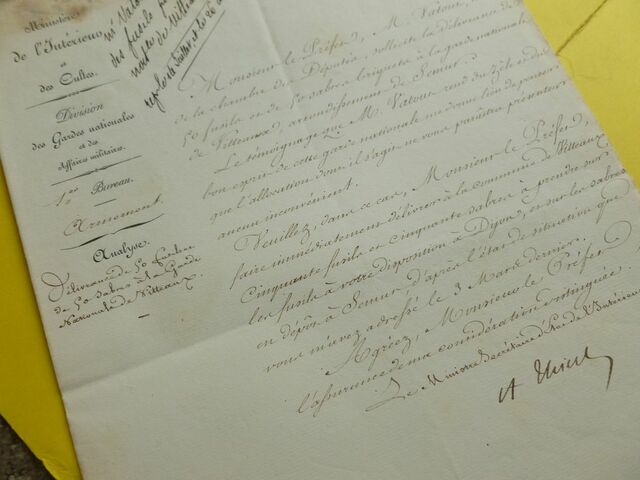 Ministère
de l'Intérieur
et
des Cultes.
Division
des Gardes nationales
et des
Affaires militaires.
1er
Bureau.
Armement.
Analyse.
Délivrance de 50 fusils et
de 50 sabres à la Garde
Nationale de Vitteaux.
Mr Vatout
des fusils
Monsieur le Préfet, M. Vatout,
de la chambre des Députés, sollicite la délivrance de
50 fusils et 50 sabres briquets à la garde nationale
de Vitteaux, arrondissement de Semur.
Le témoignage que M. Vatout rend du zèle et du
bon esprit de cette garde nationale me donne lieu de penser
que l'allocation dont il s'agit ne vous paraîtra présenter
aucun inconvénient.
Veuillez, dans ce cas, Monsieur le Préfet,
faire immédiatement délivrer à la commune de Vitteaux
Cinquante fusils et cinquante sabres à prendre sur
les fusils à votre disposition à Dijon, et sur les sabres
en dépôt à Semur, d'après l'état de situation que
vous m'avez adressé le 3 Mars dernier.
Agréez, Monsieur le Préfet
l'assurance de ma considération distinguée.
Le Ministre Secrétaire d'Etat de l'Intérieur
A Thiers